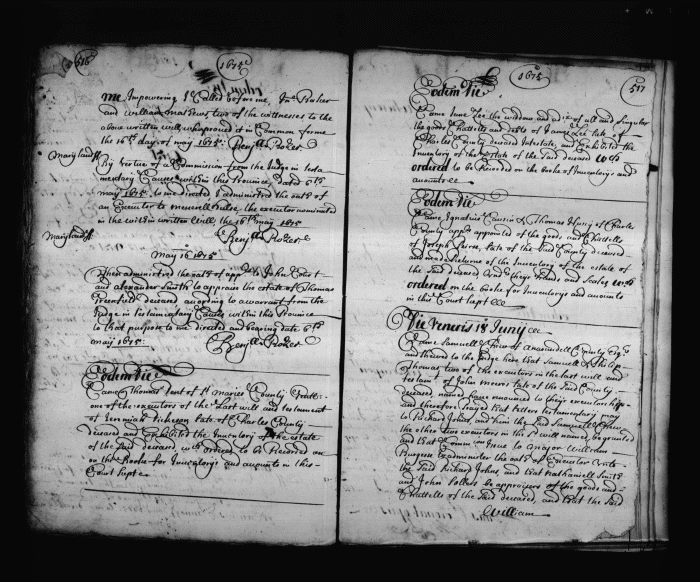 516
1675
me Impowering I Called before me, Jno Parker
and William mathews two of the witnesses to the
above written will who proved it in Common forme
the 16th day of may 1675: Benj Rozer
Maryland ss.
By vertue of a Commission from the Judge in testa
mentary Causes within this Province, dated 6th
may 1675, to me directed I administred the oath of
an Executor to the executor nominated
in the within written will the 16th may 1675
Benja Rozer
Maryland ss.
May 16 1675
Then administred the oath of appr to John Court
and alexander Smith to appraise the estate of Thomas
Greenfeild deceased according to a warrant from the
Judge in testamentary Causes within this Province
to that purpose to me directed and bearing date 6th
may 1675: Benja Rozer
Eodem Die
Came Thomas Dent of St maries County
one of the executors of the Last will and testament
of Jeremiah Dickeson Late of Charles County
deceased and Exhibited the Inventory of the estate
of the said deceased, wch ordred to be Recorded on
the Booke for Inventorys and accounts in this
Court kept
1675
517
Eodem Die
Came Jane Lee the widdow and of all and singular
the goods Chattells and debts of James Lee late of
Charles County deceased Intestate, and Exhibited the
Inventory of the Estate of the said deceased wch
ordered to be Recorded on the booke of Inventorys and
accounts &c
Eodem Die
Came Ignatius Causin & Thomas Hussy of Charles
County appr appointed of the goods and Chattells
of Joseph late of the said County deceased
and made Returne of the Inventory of the estate of
the said deceased under theyr hands and Seales wch
ordered on the booke for Inventorys and accounts
in this Court kept &c
Die Veneris 18 Juny &c
Came Samuell Chew of Annarundell County Esqr
and shewed to the Judge here that Samuell & Philip
Thomas two of the executors in the last will and
testamt of John Meers late of the said County
deceased named have renounced to theyr executorshipp
and therefore prayed that letters testamentary may
to Richard Johns, and him the said Samuell Chew
the other two executors in the sd will named, be granted
and that Comm Issue to major William
Burgess to administer the oath of Executor unto
the said Richard Johns, and that Nathaniell Smith
and John Sollers be appraisers of the goods and
Chattells of the said deceased, and that the said
William